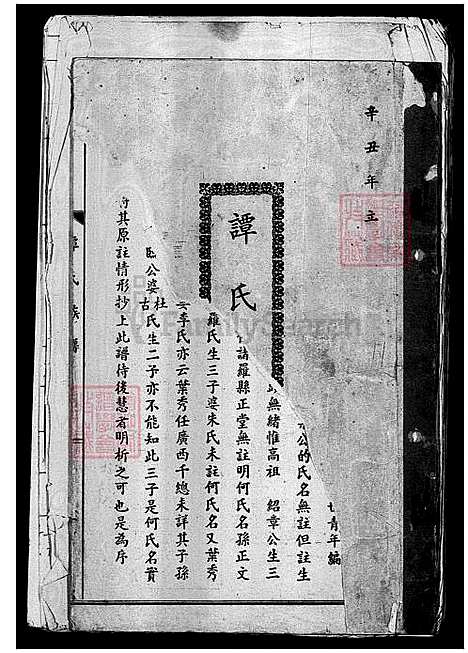 辛丑年立
廿青年編
公的氏名無註但註生
無緒惟高祖 紹章公生三
諸羅縣正堂無註明何氏名孫正文
譚氏
羅氏生三子婆朱氏未註何氏名又葉秀
李氏亦云葉秀任廣西千總未詳其子孫
杜氏生二子亦不能知此三子是何氏名實
公婆古
將其原註情形抄上此譜侍後慧者明析之可也是為序
譚氏族譜
FamilySearch